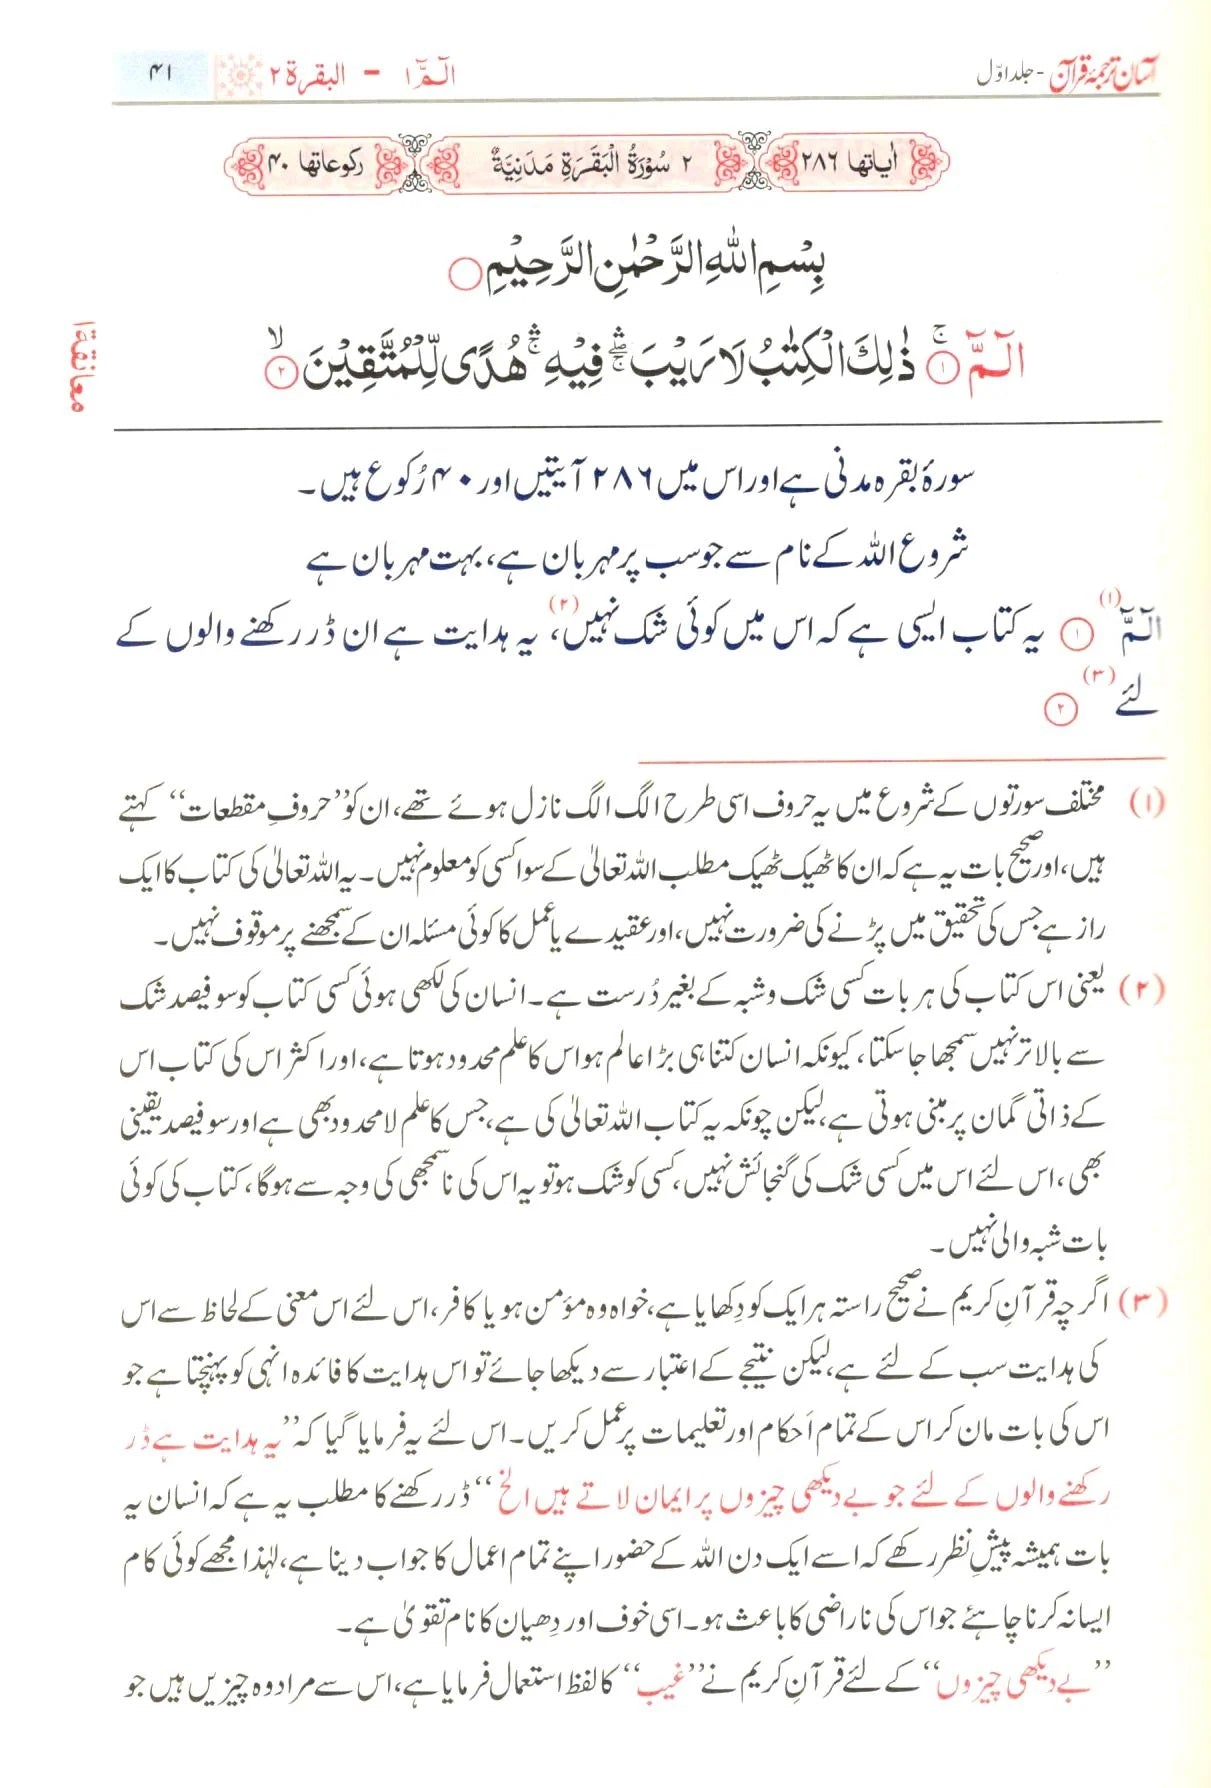 آسان ترجمۂ قرآن - جلد اوّل
الٓمّٓ ۱ - البقرة ۲
۴۱
اٰیاتها ۲۸۶
۲ سُوْرَةُ الْبَقَرَةِ مَدَنِيَّةٌ
رکوعاتها ۴۰
بِسْمِ اللهِ الرَّحْمٰنِ الرَّحِيْمِ
الٓمّٓ ۚ ۱ ذٰلِكَ الْكِتٰبُ لَا رَيْبَ ۛۖۚ فِيْهِ ۛۚ هُدًى لِّلْمُتَّقِيْنَ ۙ ۲
معانقة ۱
سورۂ بقرہ مدنی ہے اور اس میں ۲۸۶ آیتیں اور ۴۰ رُکوع ہیں۔
شروع اللہ کے نام سے جو سب پر مہربان ہے، بہت مہربان ہے
الٓمّٓ (۱) ۱ یہ کتاب ایسی ہے کہ اس میں کوئی شک نہیں، (۲) یہ ہدایت ہے ان ڈر رکھنے والوں کے
لئے (۳) ۲
(۱) مختلف سورتوں کے شروع میں یہ حروف اسی طرح الگ الگ نازل ہوئے تھے، ان کو ’’حروفِ مقطعات‘‘ کہتے
ہیں، اور صحیح بات یہ ہے کہ ان کا ٹھیک ٹھیک مطلب اللہ تعالیٰ کے سوا کسی کو معلوم نہیں۔ یہ اللہ تعالیٰ کی کتاب کا ایک
راز ہے جس کی تحقیق میں پڑنے کی ضرورت نہیں، اور عقیدے یا عمل کا کوئی مسئلہ ان کے سمجھنے پر موقوف نہیں۔
(۲) یعنی اس کتاب کی ہر بات کسی شک و شبہ کے بغیر دُرست ہے۔ انسان کی لکھی ہوئی کسی کتاب کو سو فیصد شک
سے بالاتر نہیں سمجھا جا سکتا، کیونکہ انسان کتنا ہی بڑا عالم ہو اس کا علم محدود ہوتا ہے، اور اکثر اس کی کتاب اس
کے ذاتی گمان پر مبنی ہوتی ہے، لیکن چونکہ یہ کتاب اللہ تعالیٰ کی ہے، جس کا علم لامحدود بھی ہے اور سو فیصد یقینی
بھی، اس لئے اس میں کسی شک کی گنجائش نہیں، کسی کو شک ہو تو یہ اس کی ناسمجھی کی وجہ سے ہوگا، کتاب کی کوئی
بات شبہ والی نہیں۔
(۳) اگرچہ قرآنِ کریم نے صحیح راستہ ہر ایک کو دِکھایا ہے، خواہ وہ مؤمن ہو یا کافر، اس لئے اس معنی کے لحاظ سے اس
کی ہدایت سب کے لئے ہے، لیکن نتیجے کے اعتبار سے دیکھا جائے تو اس ہدایت کا فائدہ انہی کو پہنچتا ہے جو
اس کی بات مان کر اس کے تمام اَحکام اور تعلیمات پر عمل کریں۔ اس لئے یہ فرمایا گیا کہ ’’یہ ہدایت ہے ڈر
رکھنے والوں کے لئے جو بے دیکھی چیزوں پر ایمان لاتے ہیں الخ‘‘ ڈر رکھنے کا مطلب یہ ہے کہ انسان یہ
بات ہمیشہ پیشِ نظر رکھے کہ اسے ایک دن اللہ کے حضور اپنے تمام اعمال کا جواب دینا ہے، لہٰذا مجھے کوئی کام
ایسا نہ کرنا چاہئے جو اس کی ناراضی کا باعث ہو۔ اسی خوف اور دِھیان کا نام تقویٰ ہے۔
’’بے دیکھی چیزوں‘‘ کے لئے قرآنِ کریم نے ’’غیب‘‘ کا لفظ استعمال فرمایا ہے، اس سے مراد وہ چیزیں ہیں جو